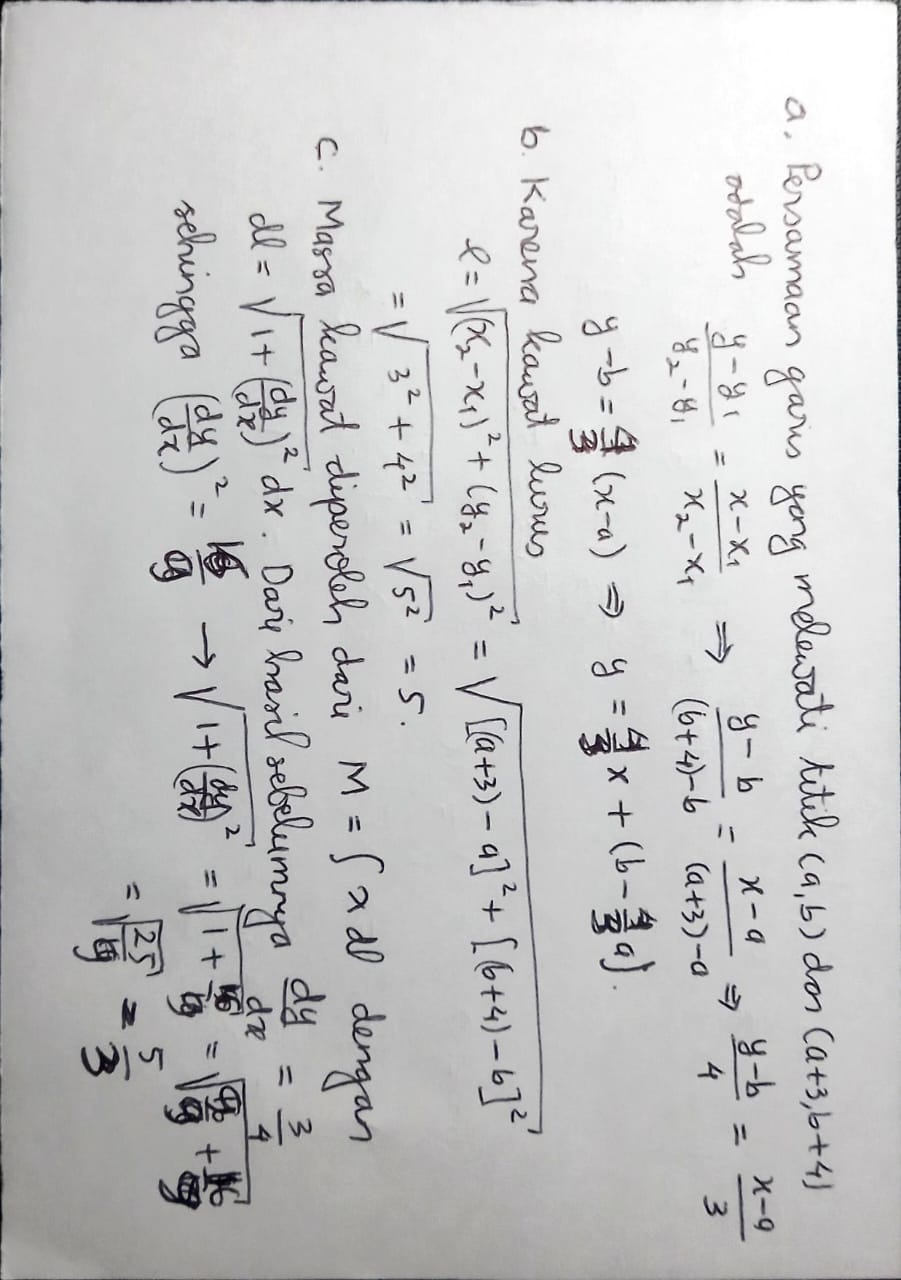 a. Persamaan garis yang melewati titik (a,b) dan (a+3,b+4)
adalah (y-y₁)/(y₂-y₁) = (x-x₁)/(x₂-x₁) ⇒ (y-b)/((b+4)-b) = (x-a)/((a+3)-a) ⇒ (y-b)/4 = (x-a)/3
y-b = 4/3 (x-a) ⇒ y = 4/3 x + (b - 4/3 a).
b. Karena kawat lurus
l = √((x₂-x₁)² + (y₂-y₁)²) = √([(a+3)-a]² + [(b+4)-b]²)
= √(3² + 4²) = √(5²) = 5.
c. Massa kawat diperoleh dari M = ∫ λ dl dengan
dl = √(1+(dy/dx)²) dx. Dari hasil sebelumnya dy/dx = 3/4
sehingga (dy/dx)² = 16/9 → √(1+(dy/dx)²) = √(1+16/9) = √(9/9 + 16/9)
= √(25/9) = 5/3